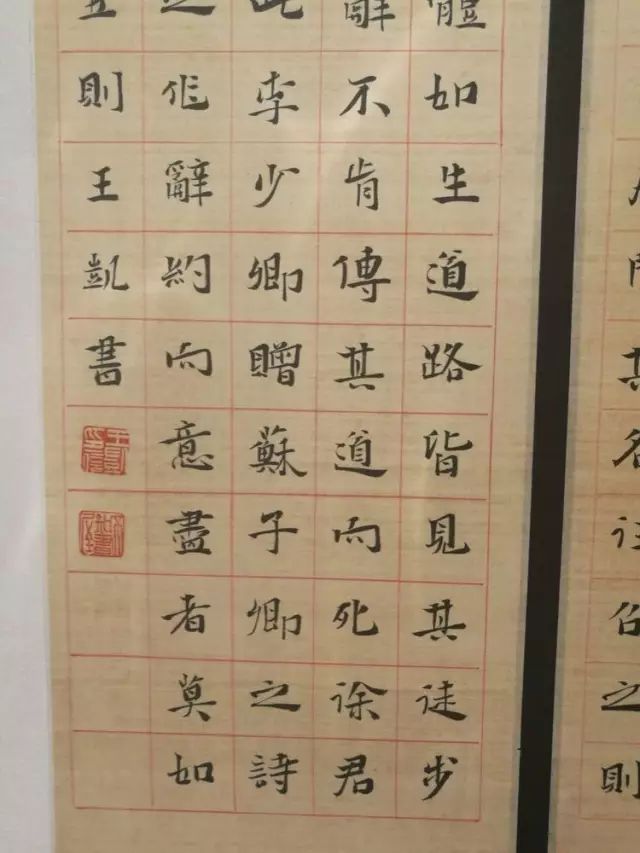 其名之則
體如生道路皆見其徒步
辭不肯傳其道而死徐君
此李少卿贈蘇子卿之詩
之作辭約而意盡者莫如
五則王凱書